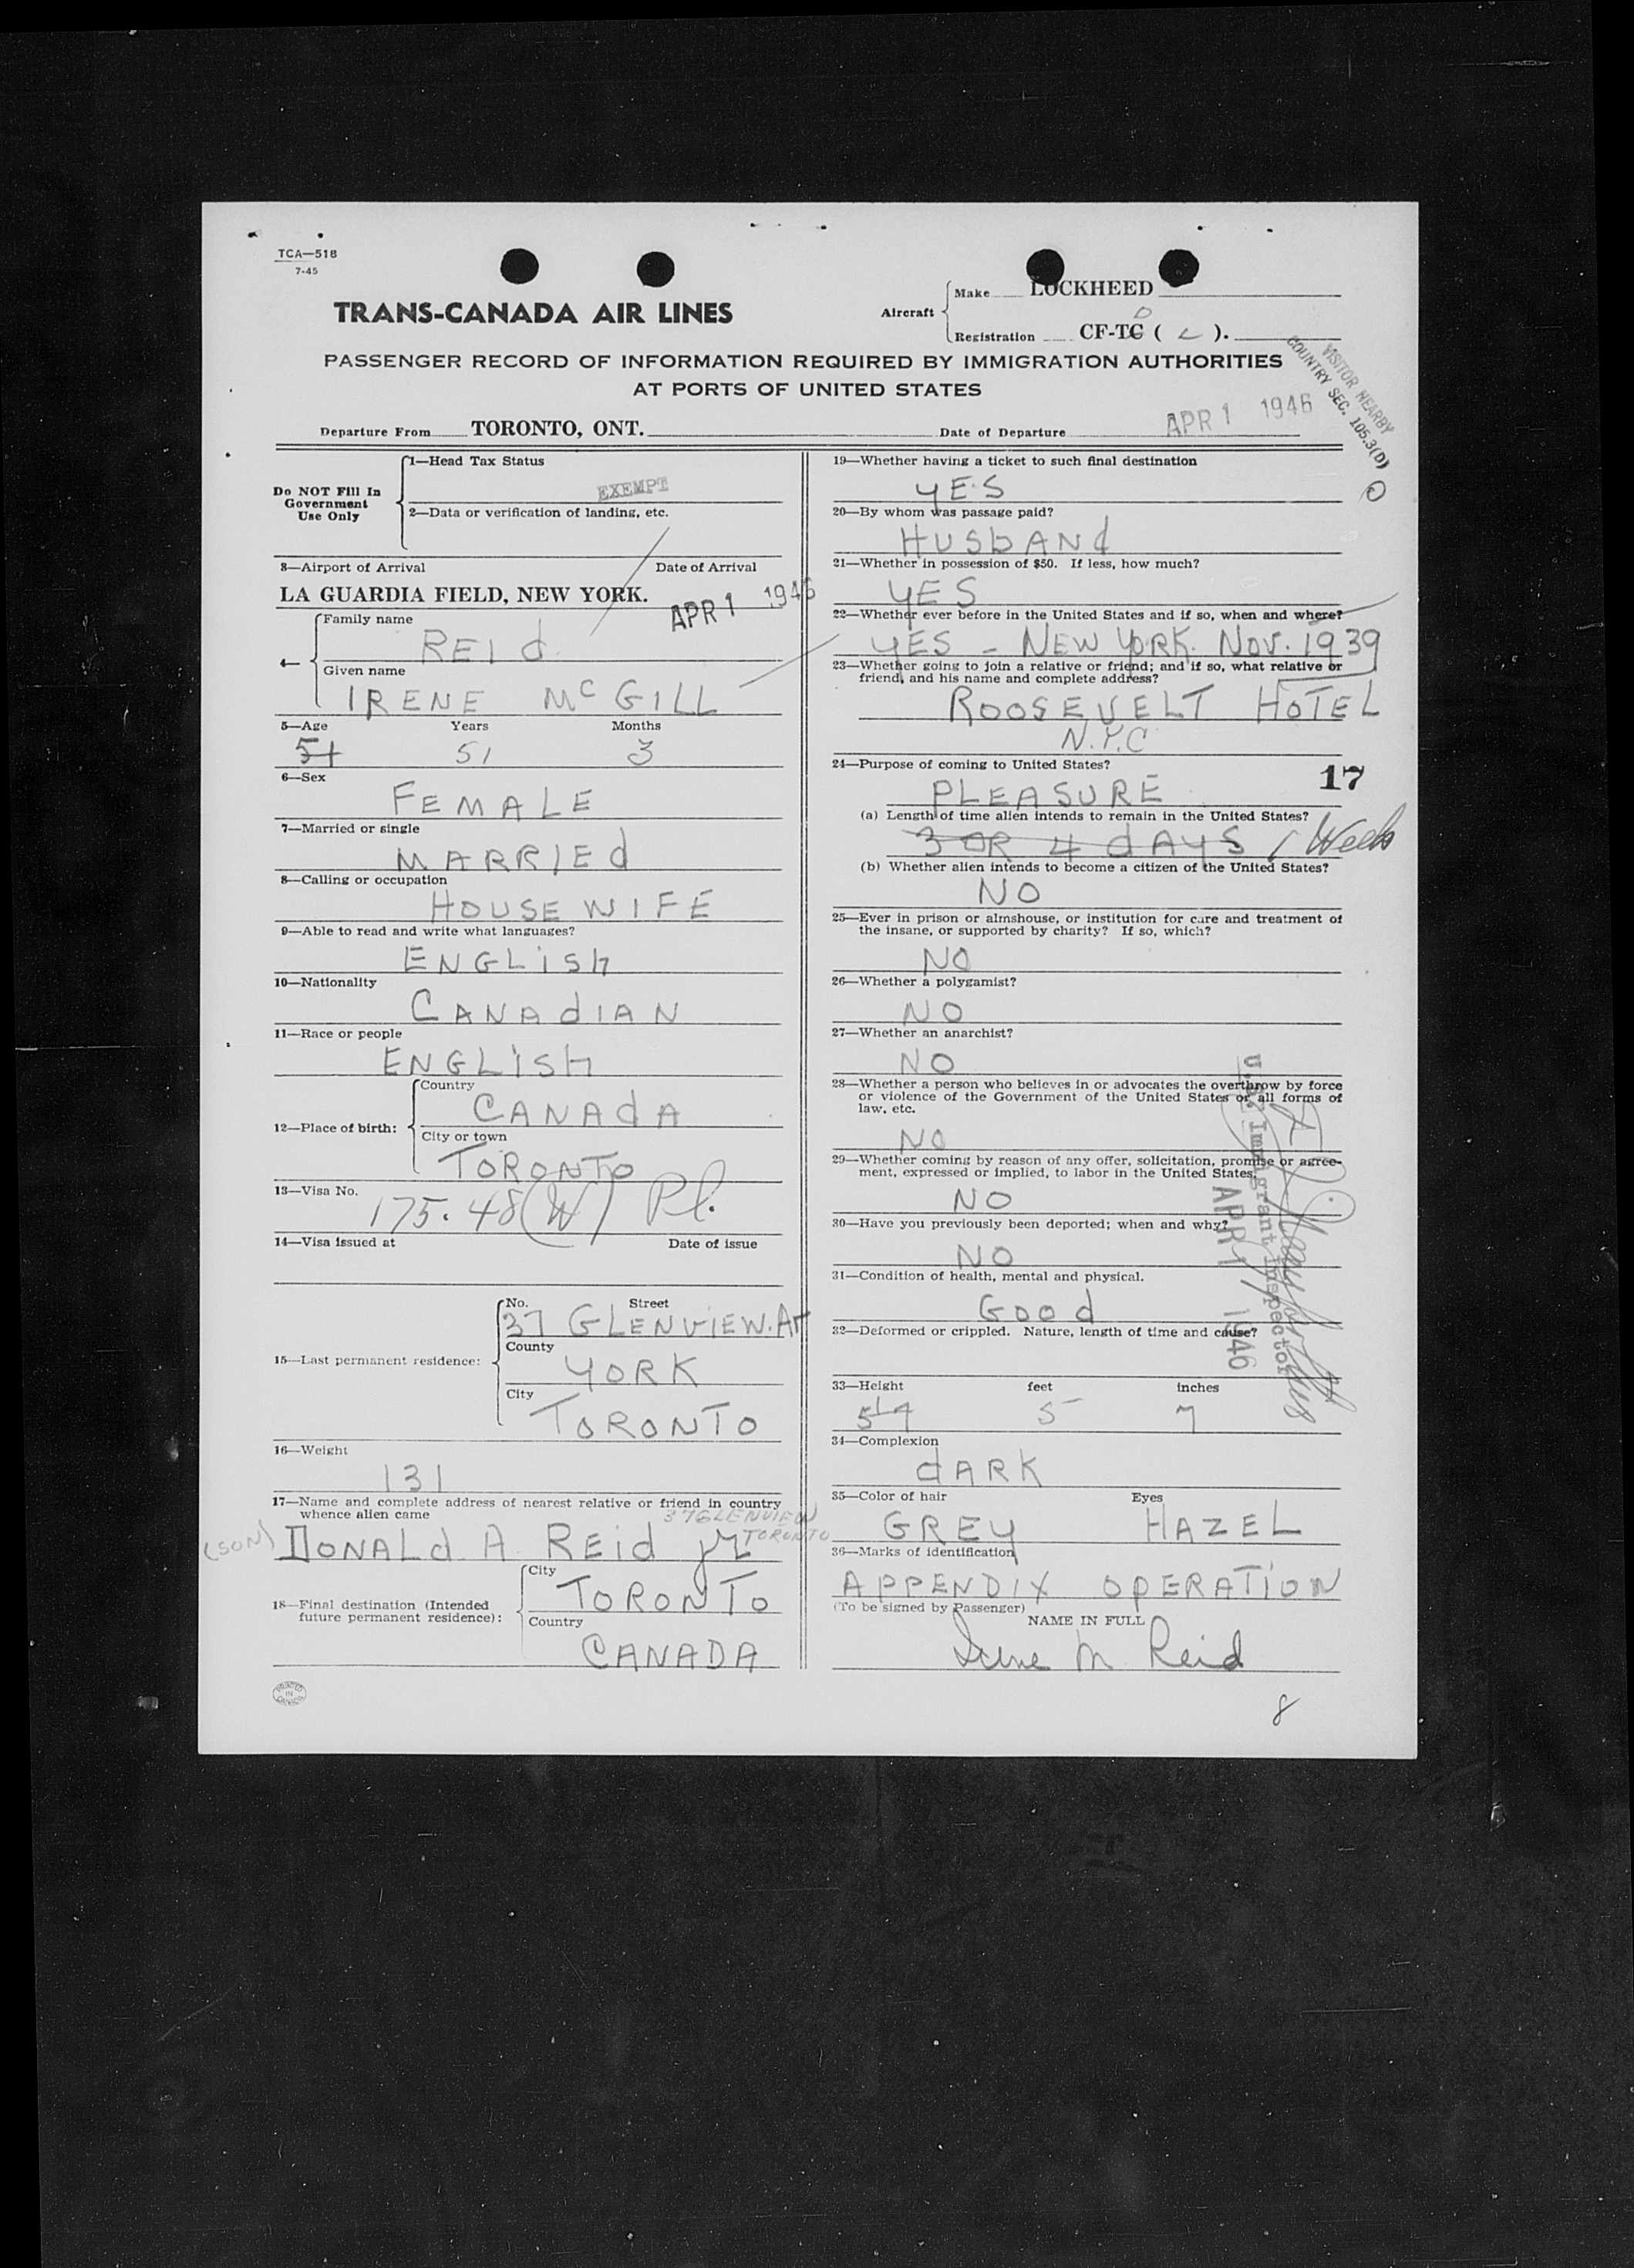 TCA—518
7-45
TRANS-CANADA AIR LINES
Aircraft
Make LOCKHEED
D
Registration CF-TC ( L ).
PASSENGER RECORD OF INFORMATION REQUIRED BY IMMIGRATION AUTHORITIES
AT PORTS OF UNITED STATES
VISITOR NEARBY
COUNTRY SEC. 105.3(D)
Departure From TORONTO, ONT. Date of Departure APR 1 1946
Do NOT Fill In
Government
Use Only
1—Head Tax Status
EXEMPT
2—Data or verification of landing, etc.
3—Airport of Arrival Date of Arrival
LA GUARDIA FIELD, NEW YORK. APR 1 1946
4—
Family name
REId
Given name
IRENE McGILL
5—Age Years Months
51 51 3
6—Sex
FEMALE
7—Married or single
MARRIEd
8—Calling or occupation
HOUSE WIFE
9—Able to read and write what languages?
ENGLiSh
10—Nationality
CANAdIAN
11—Race or people
ENGLiSH
12—Place of birth:
Country
CANAdA
City or town
TORONTO
13—Visa No.
175.48(W) Pl.
14—Visa issued at Date of issue
15—Last permanent residence:
No. Street
37 GLENVIEW.AV
County
YORK
City
TORONTO
16—Weight
131
17—Name and complete address of nearest relative or friend in country
whence alien came
37 GLENVIEW
TORONTO
(SON) DONALd A REid Jr
18—Final destination (Intended
future permanent residence):
City
TORONTO
Country
CANADA
PRINTED
IN
CANADA
19—Whether having a ticket to such final destination
YES
O
20—By whom was passage paid?
HUSbANd
21—Whether in possession of $50. If less, how much?
YES
22—Whether ever before in the United States and if so, when and where?
YES - NEW YORK. NOV. 1939
23—Whether going to join a relative or friend; and if so, what relative or
friend, and his name and complete address?
ROOSEVELT HOTEL
N.Y.C
24—Purpose of coming to United States?
17
PLEASURE
(a) Length of time alien intends to remain in the United States?
3 OR 4 dAYS 1 Week
(b) Whether alien intends to become a citizen of the United States?
NO
25—Ever in prison or almshouse, or institution for care and treatment of
the insane, or supported by charity? If so, which?
NO
26—Whether a polygamist?
NO
27—Whether an anarchist?
NO
28—Whether a person who believes in or advocates the overthrow by force
or violence of the Government of the United States or all forms of
law, etc.
NO
29—Whether coming by reason of any offer, solicitation, promise or agree-
ment, expressed or implied, to labor in the United States.
NO
30—Have you previously been deported; when and why?
NO
31—Condition of health, mental and physical.
Good
U.S. Immigrant Inspector
APR 1 1946
32—Deformed or crippled. Nature, length of time and cause?
33—Height feet inches
5 7
34—Complexion
dARK
35—Color of hair Eyes
GREY HAZEL
36—Marks of identification
APPENDIX OPERATiON
(To be signed by Passenger)
NAME IN FULL
Irene M Reid
8